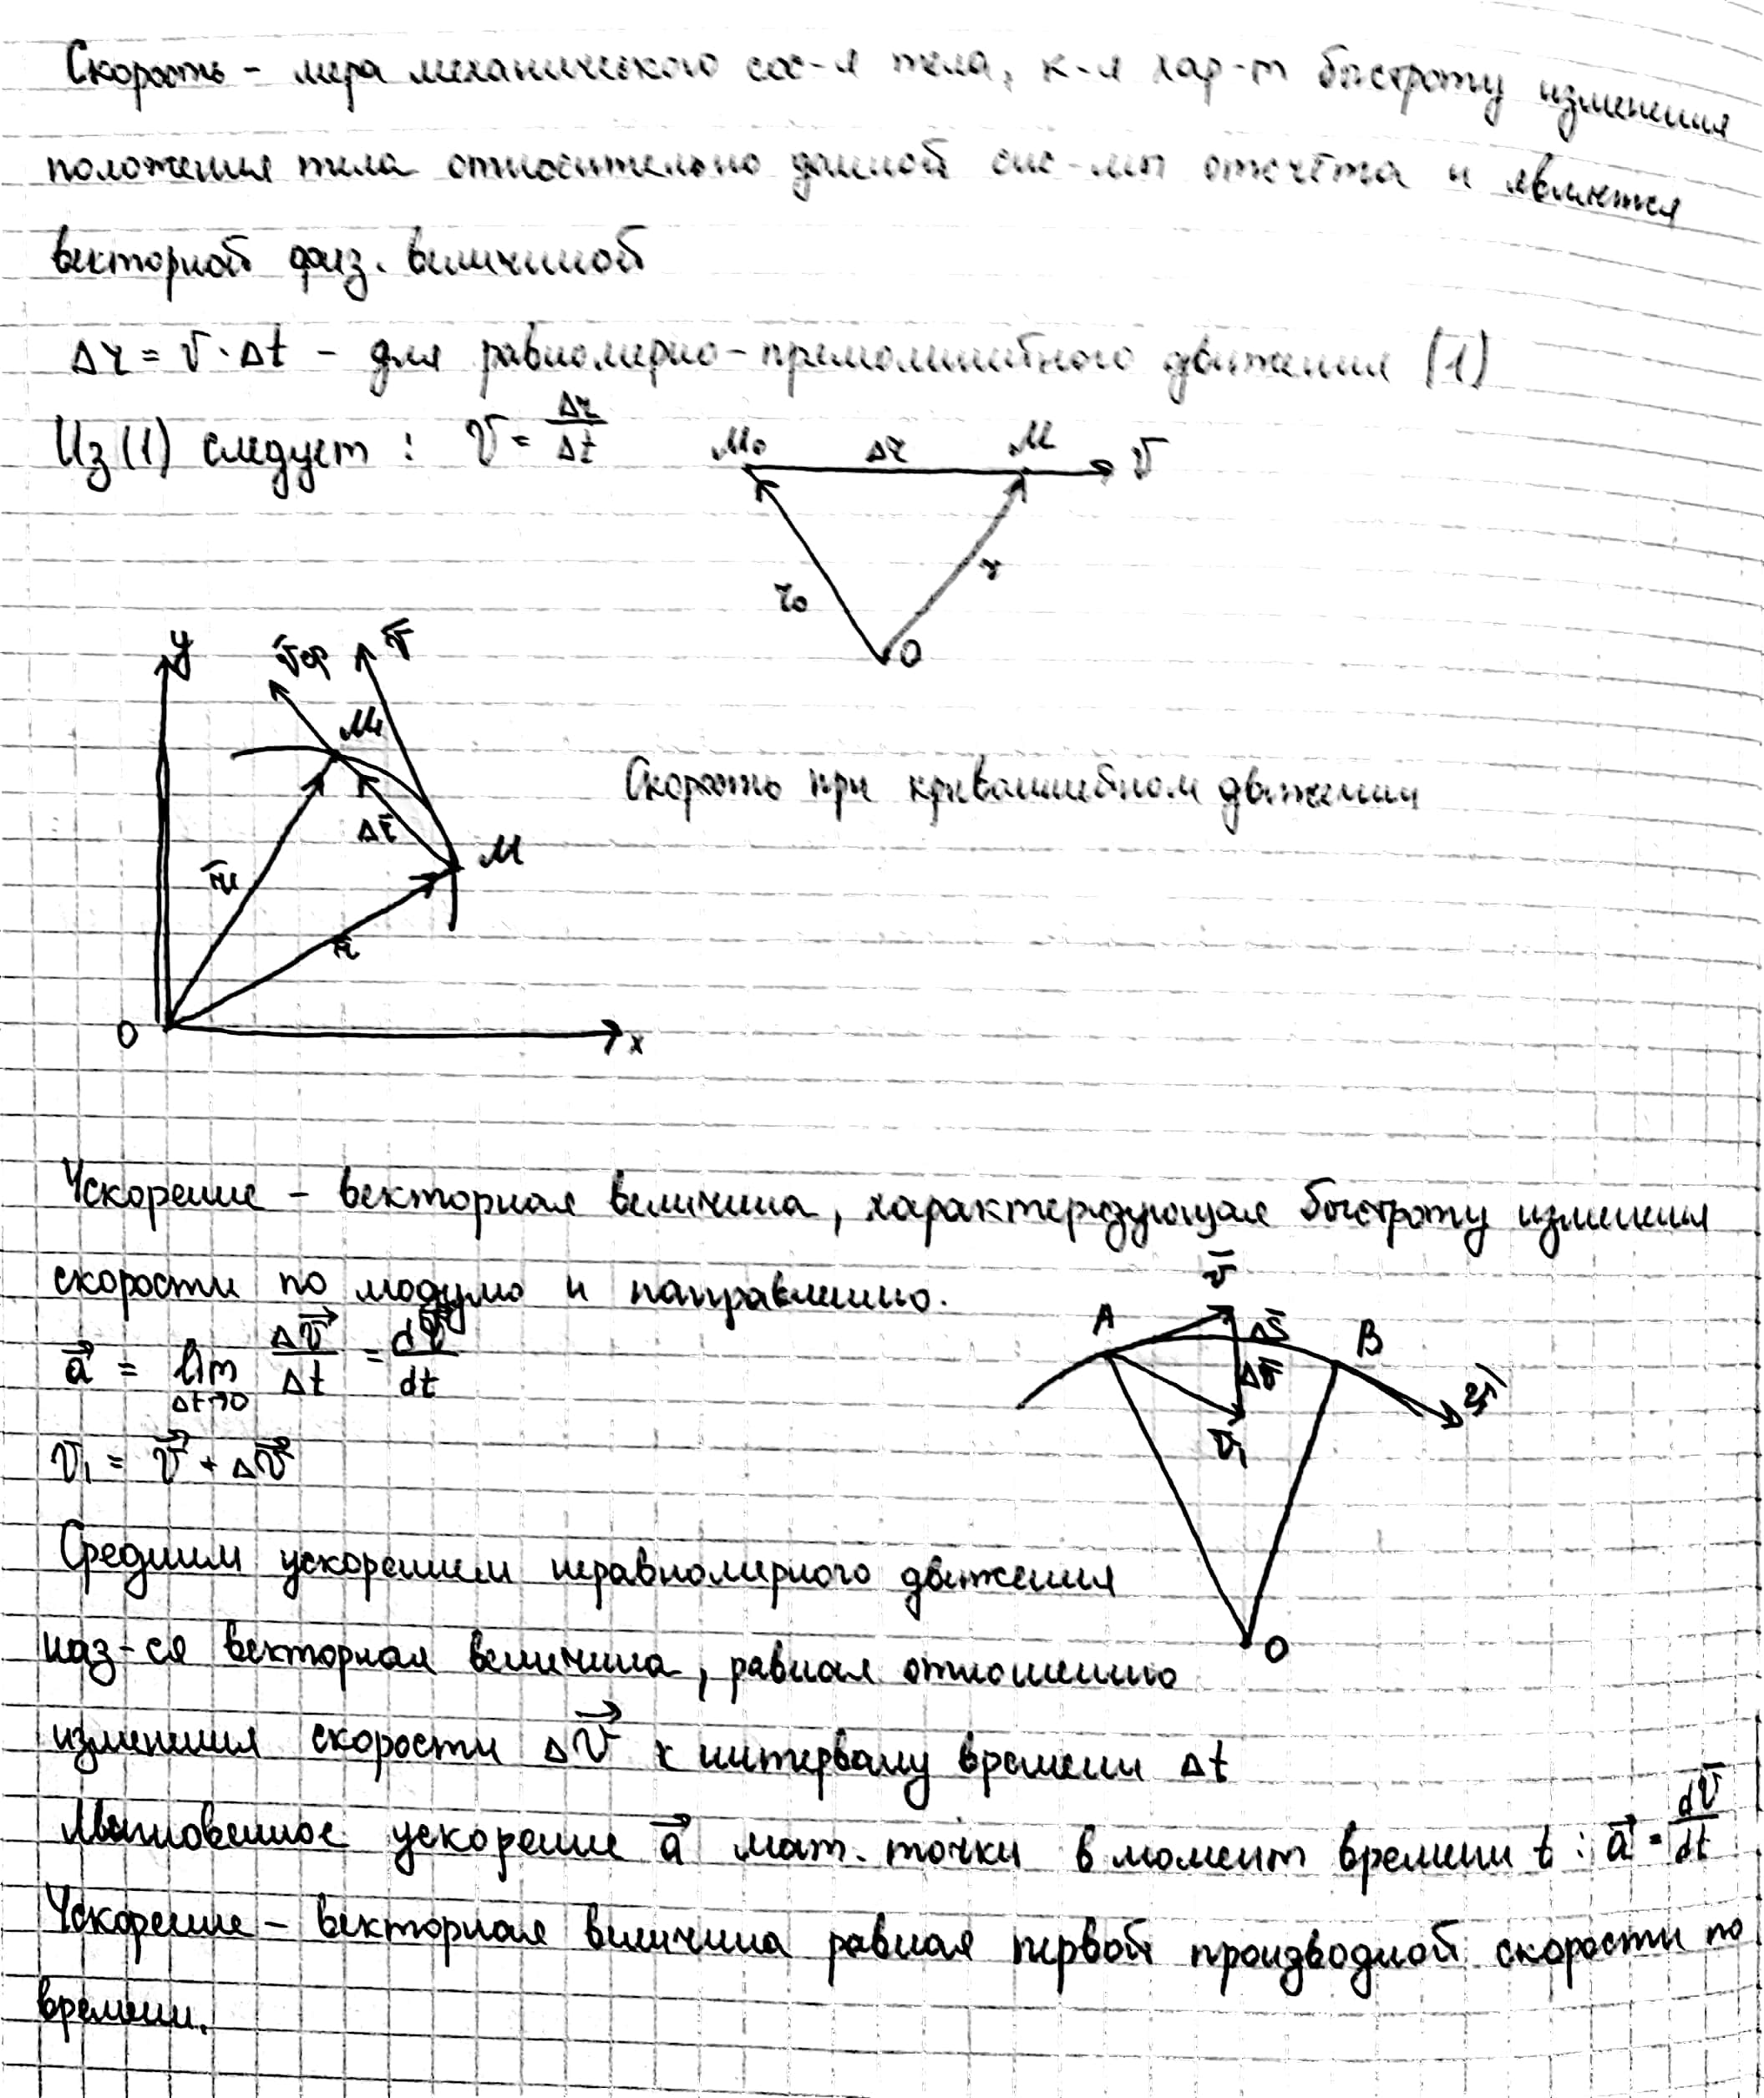 Скорость - мера механического сос-я тела, к-я хар-т быстроту изменения
положения тела относительно данной сис-мы отсчёта и является
векторной физ. величиной
Δr = v · Δt - для равномерно-прямолинейного движения (1)
Из (1) следует: v = Δr/Δt
M₀ Δr M v
r₀ r
O
y v̄ср v̄
M₁
Скорость при криволинейном движении
Δr̄ M
r̄₁
r̄
O x
Ускорение - векторная величина, характеризующая быстроту изменения
скорости по модулю и направлению.
v̄
A Δs̄ B
a⃗ = lim Δt→0 Δv⃗/Δt = dv⃗/dt
Δv̄
v̄₁ v̄₁
v₁ = v⃗ + Δv⃗
Средним ускорением неравномерного движения
наз-ся векторная величина, равная отношению
O
изменения скорости Δv⃗ к интервалу времени Δt
Мгновенное ускорение a⃗ мат. точки в момент времени t: a⃗ = dv̄/dt
Ускорение - векторная величина равная первой производной скорости по
времени.